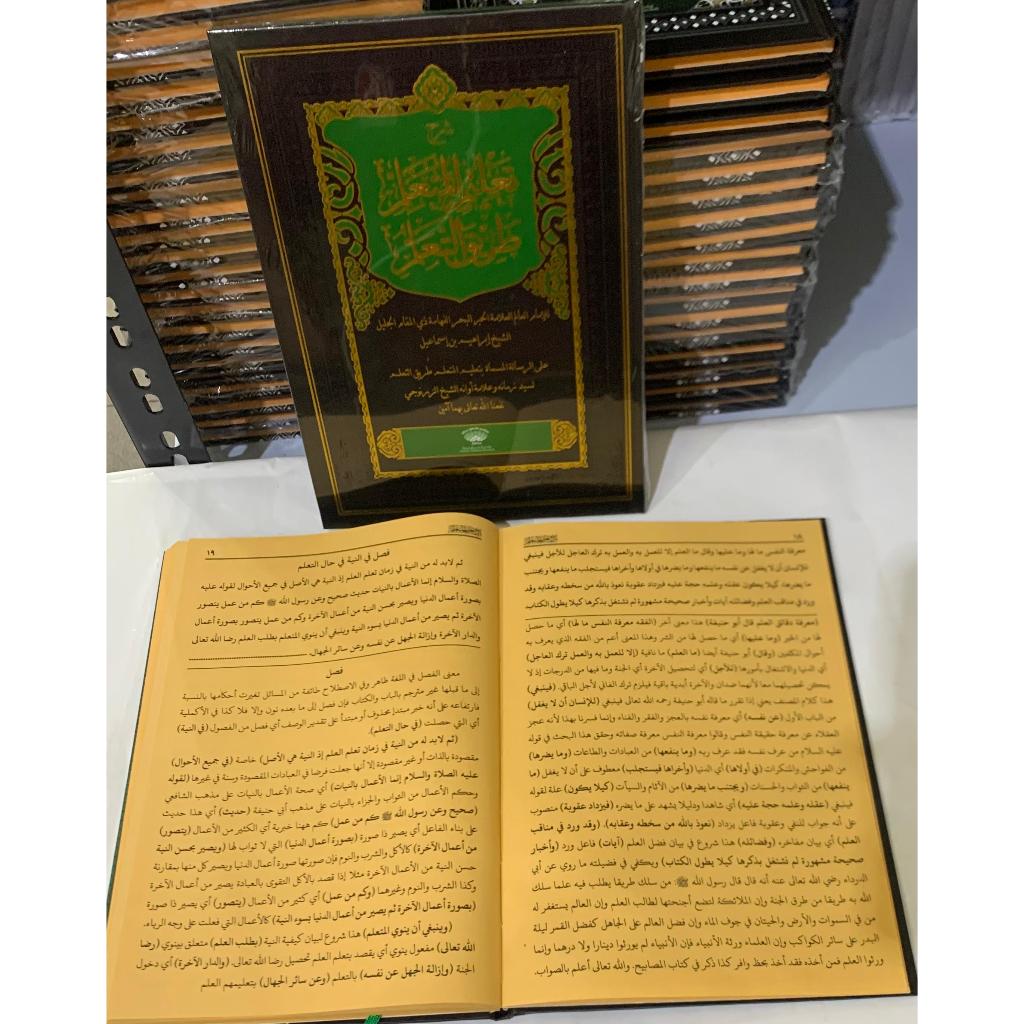 شرح
تعليم المتعلم
طريق التعلم
للإمام العالم العلامة الحبر البحر الفهامة ذي المقام الجليل
الشيخ إبراهيم بن إسماعيل
على الرسالة المسماة بتعليم المتعلم طريق التعلم
لسيد زمانه وعلامة أوانه الشيخ الزرنوجي
نفعنا الله تعالى بهما آمين
١٨
معرفة النفس ما لها وما عليها وقال ما العلم إلا للعمل به والعمل به ترك العاجل للآجل فينبغي
للإنسان أن لا يغفل عن نفسه ما ينفعها وما يضرها في أولاها وأخراها فيستجلب ما ينفعها ويجتنب
ما يضرها، كيلا يكون عقله وعلمه حجة عليه فيزداد عقوبة نعوذ بالله من سخطه وعقابه وقد
ورد في مناقب العلم وفضائله آيات وأخبار صحيحة مشهورة لم نشتغل بذكرها كيلا يطول الكتاب.
(معرفة دقائق العلم قال أبو حنيفة) هذا معنى آخر (الفقه معرفة النفس ما لها) أي ما حصل
لها من الخير (وما عليها) أي ما حصل لها من الشر وهذا المعنى أعم من الفقه الذي يعرف به
أحوال المكلفين (وقال) أبو حنيفة أيضا (ما العلم) ما نافية (إلا للعمل به والعمل ترك العاجل)
أي الدنيا والاشتغال بأمورها (للآجل) أي لتحصيل الآخرة أي الجنة وما فيها من الدرجات إذ لا
يمكن تحصيلهما معا لأنهما ضدان والآخرة أبدية باقية فيلزم ترك الفاني لأجل الباقي. (فينبغي)
هذا كلام المصنف يعني إذا تقرر ما قاله أبو حنيفة رحمه الله تعالى فينبغي (للإنسان أن لا يغفل)
من الباب الأول (عن نفسه) أي معرفة نفسه بالعجز والفقر والفناء وإنما فسرنا بهذا لأنه عجز
العقلاء عن معرفة حقيقة النفس وقالوا معرفة النفس معرفة صفاته وحقق هذا البحث في قوله
عليه السلام من عرف نفسه فقد عرف ربه (وما ينفعها) من العبادات والطاعات (وما يضرها)
من الفواحش والمنكرات (في أولاها) أي الدنيا (وأخراها فيستجلب) معطوف على أن لا يغفل (ما
ينفعها) من الثواب والحسنات (ويجتنب ما يضرها) من الآثام والسيآت (كيلا يكون) علة لقوله
فينبغي (عقله وعلمه حجة عليه) أي شاهدا ودليلا يشهد على ما يضره (فيزداد عقوبة) منصوب
على أنه جواب للنفي وعقوبة فاعل يزداد (نعوذ بالله من سخطه وعقابه). (وقد ورد في مناقب
العلم) أي بيان مفاخره (وفضائله) هذا شروع في بيان فضل العلم (آيات) فاعل ورد (وأخبار
صحيحة مشهورة لم نشتغل بذكرها كيلا يطول الكتاب) ويكفي في فضيلته ما روي عن أبي
الدرداء رضي الله تعالى عنه أنه قال قال رسول الله ﷺ: من سلك طريقا يطلب فيه علما سلك
الله به طريقا من طرق الجنة وإن الملائكة لتضع أجنحتها لطالب العلم وإن العالم يستغفر له
من في السموات والأرض والحيتان في جوف الماء وإن فضل العالم على الجاهل كفضل القمر ليلة
البدر على سائر الكواكب وإن العلماء ورثة الأنبياء فإن الأنبياء لم يورثوا دينارا ولا درهما وإنما
ورثوا العلم فمن أخذه فقد أخذ بحظ وافر كذا ذكر في كتاب المصابيح. والله تعالى أعلم بالصواب.
فصل في النية في حال التعلم
١٩
ثم لابد له من النية في زمان تعلم العلم إذ النية هي الأصل في جميع الأحوال لقوله عليه
الصلاة والسلام إنما الأعمال بالنيات حديث صحيح وعن رسول الله ﷺ كم من عمل يتصور
بصورة أعمال الدنيا ويصير بحسن النية من أعمال الآخرة وكم من عمل يتصور بصورة أعمال
الآخرة ثم يصير من أعمال الدنيا بسوء النية وينبغي أن ينوي المتعلم بطلب العلم رضا الله تعالى
والدار الآخرة وإزالة الجهل عن نفسه وعن سائر الجهال.
فصل
معنى الفصل في اللغة ظاهر وفي الاصطلاح طائفة من المسائل تغيرت أحكامها بالنسبة
إلى ما قبلها غير مترجم بالباب والكتاب فإن فصل إلى ما بعده نون وإلا فلا كذا في الأكملية
فارتفاعه على أنه خبر مبتدإ محذوف أو مبتدأ على تقدير الوصف أي فصل من الفصول (في النية)
أي التي حصلت (في حال التعلم).
(ثم لابد له من النية في زمان تعلم العلم إذ النية هي الأصل) خاصة (في جميع الأحوال)
مقصودة بالذات أو غير مقصودة إلا أنها جعلت فرضا في العبادات المقصودة وسنة في غيرها (لقوله
عليه الصلاة والسلام إنما الأعمال بالنيات) أي صحة الأعمال بالنيات على مذهب الشافعي
وحكم الأعمال من الثواب والجزاء بالنيات على مذهب أبي حنيفة (حديث) أي هذا حديث
(صحيح وعن رسول الله ﷺ كم من عمل) كم ههنا خبرية أي الكثير من الأعمال (يتصور)
على بناء الفاعل أي يصير ذا صورة (بصورة أعمال الدنيا) التي لا ثواب لها (ويصير بحسن النية
من أعمال الآخرة) كالأكل والشرب والنوم فإن صورتها صورة أعمال الدنيا ويصير كل منها بمقارنة
حسن النية من الأعمال الآخرة مثلا إذا قصد بالأكل التقوى بالعبادة يصير من أعمال الآخرة
وكذا الشرب والنوم وغيرهما (وكم من عمل) أي كثير من الأعمال (يتصور) أي يصير ذا صورة
(بصورة أعمال الآخرة ثم يصير من أعمال الدنيا بسوء النية) كالأعمال التي فعلت على وجه الرياء.
(وينبغي أن ينوي المتعلم) هذا شروع لبيان كيفية النية (بطلب العلم) متعلق بينوي (رضا
الله تعالى) مفعول ينوي أي يقصد بتعلم العلم تحصيل رضا الله تعالى. (والدار الآخرة) أي دخول
الجنة (وإزالة الجهل عن نفسه) بالتعلم (وعن سائر الجهال) بتعليمهم العلم